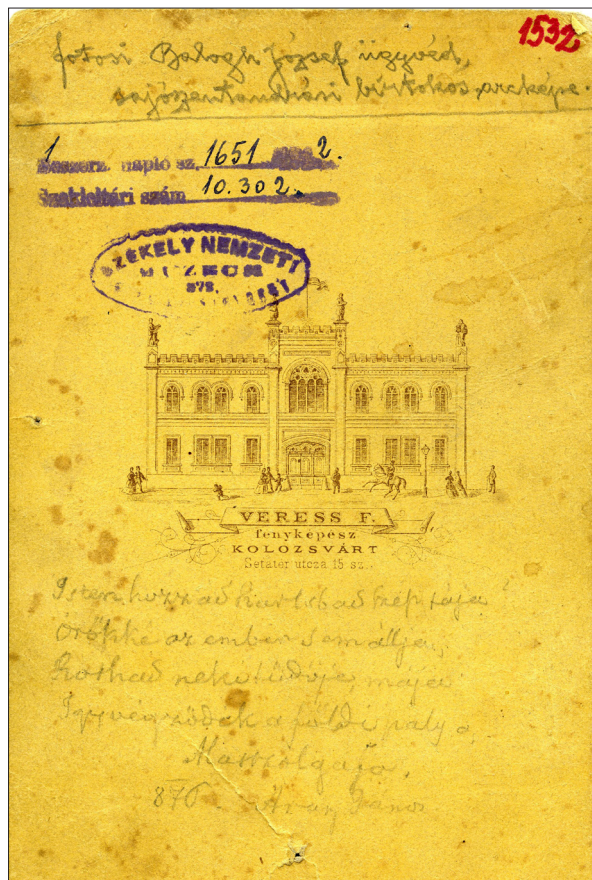 1532
fotosi Balogh József ügyvéd,
sajószentandrási birtokos arcképe.
1
Beszerz. napló sz. 1651 2.
Szakleltári szám 10.302.
SZÉKELY NEMZETI
MUZEUM
879.
VERESS F.
fenyképesz
KOLOZSVÁRT
Setatér utcza 15 sz.
Isten hozzád Karlsbad szép tája
Örökké az ember sem állja,
Rothad neki tüdeje, mája
Igy végződik a földi pálya.
Alászolgája.
876 Arany János